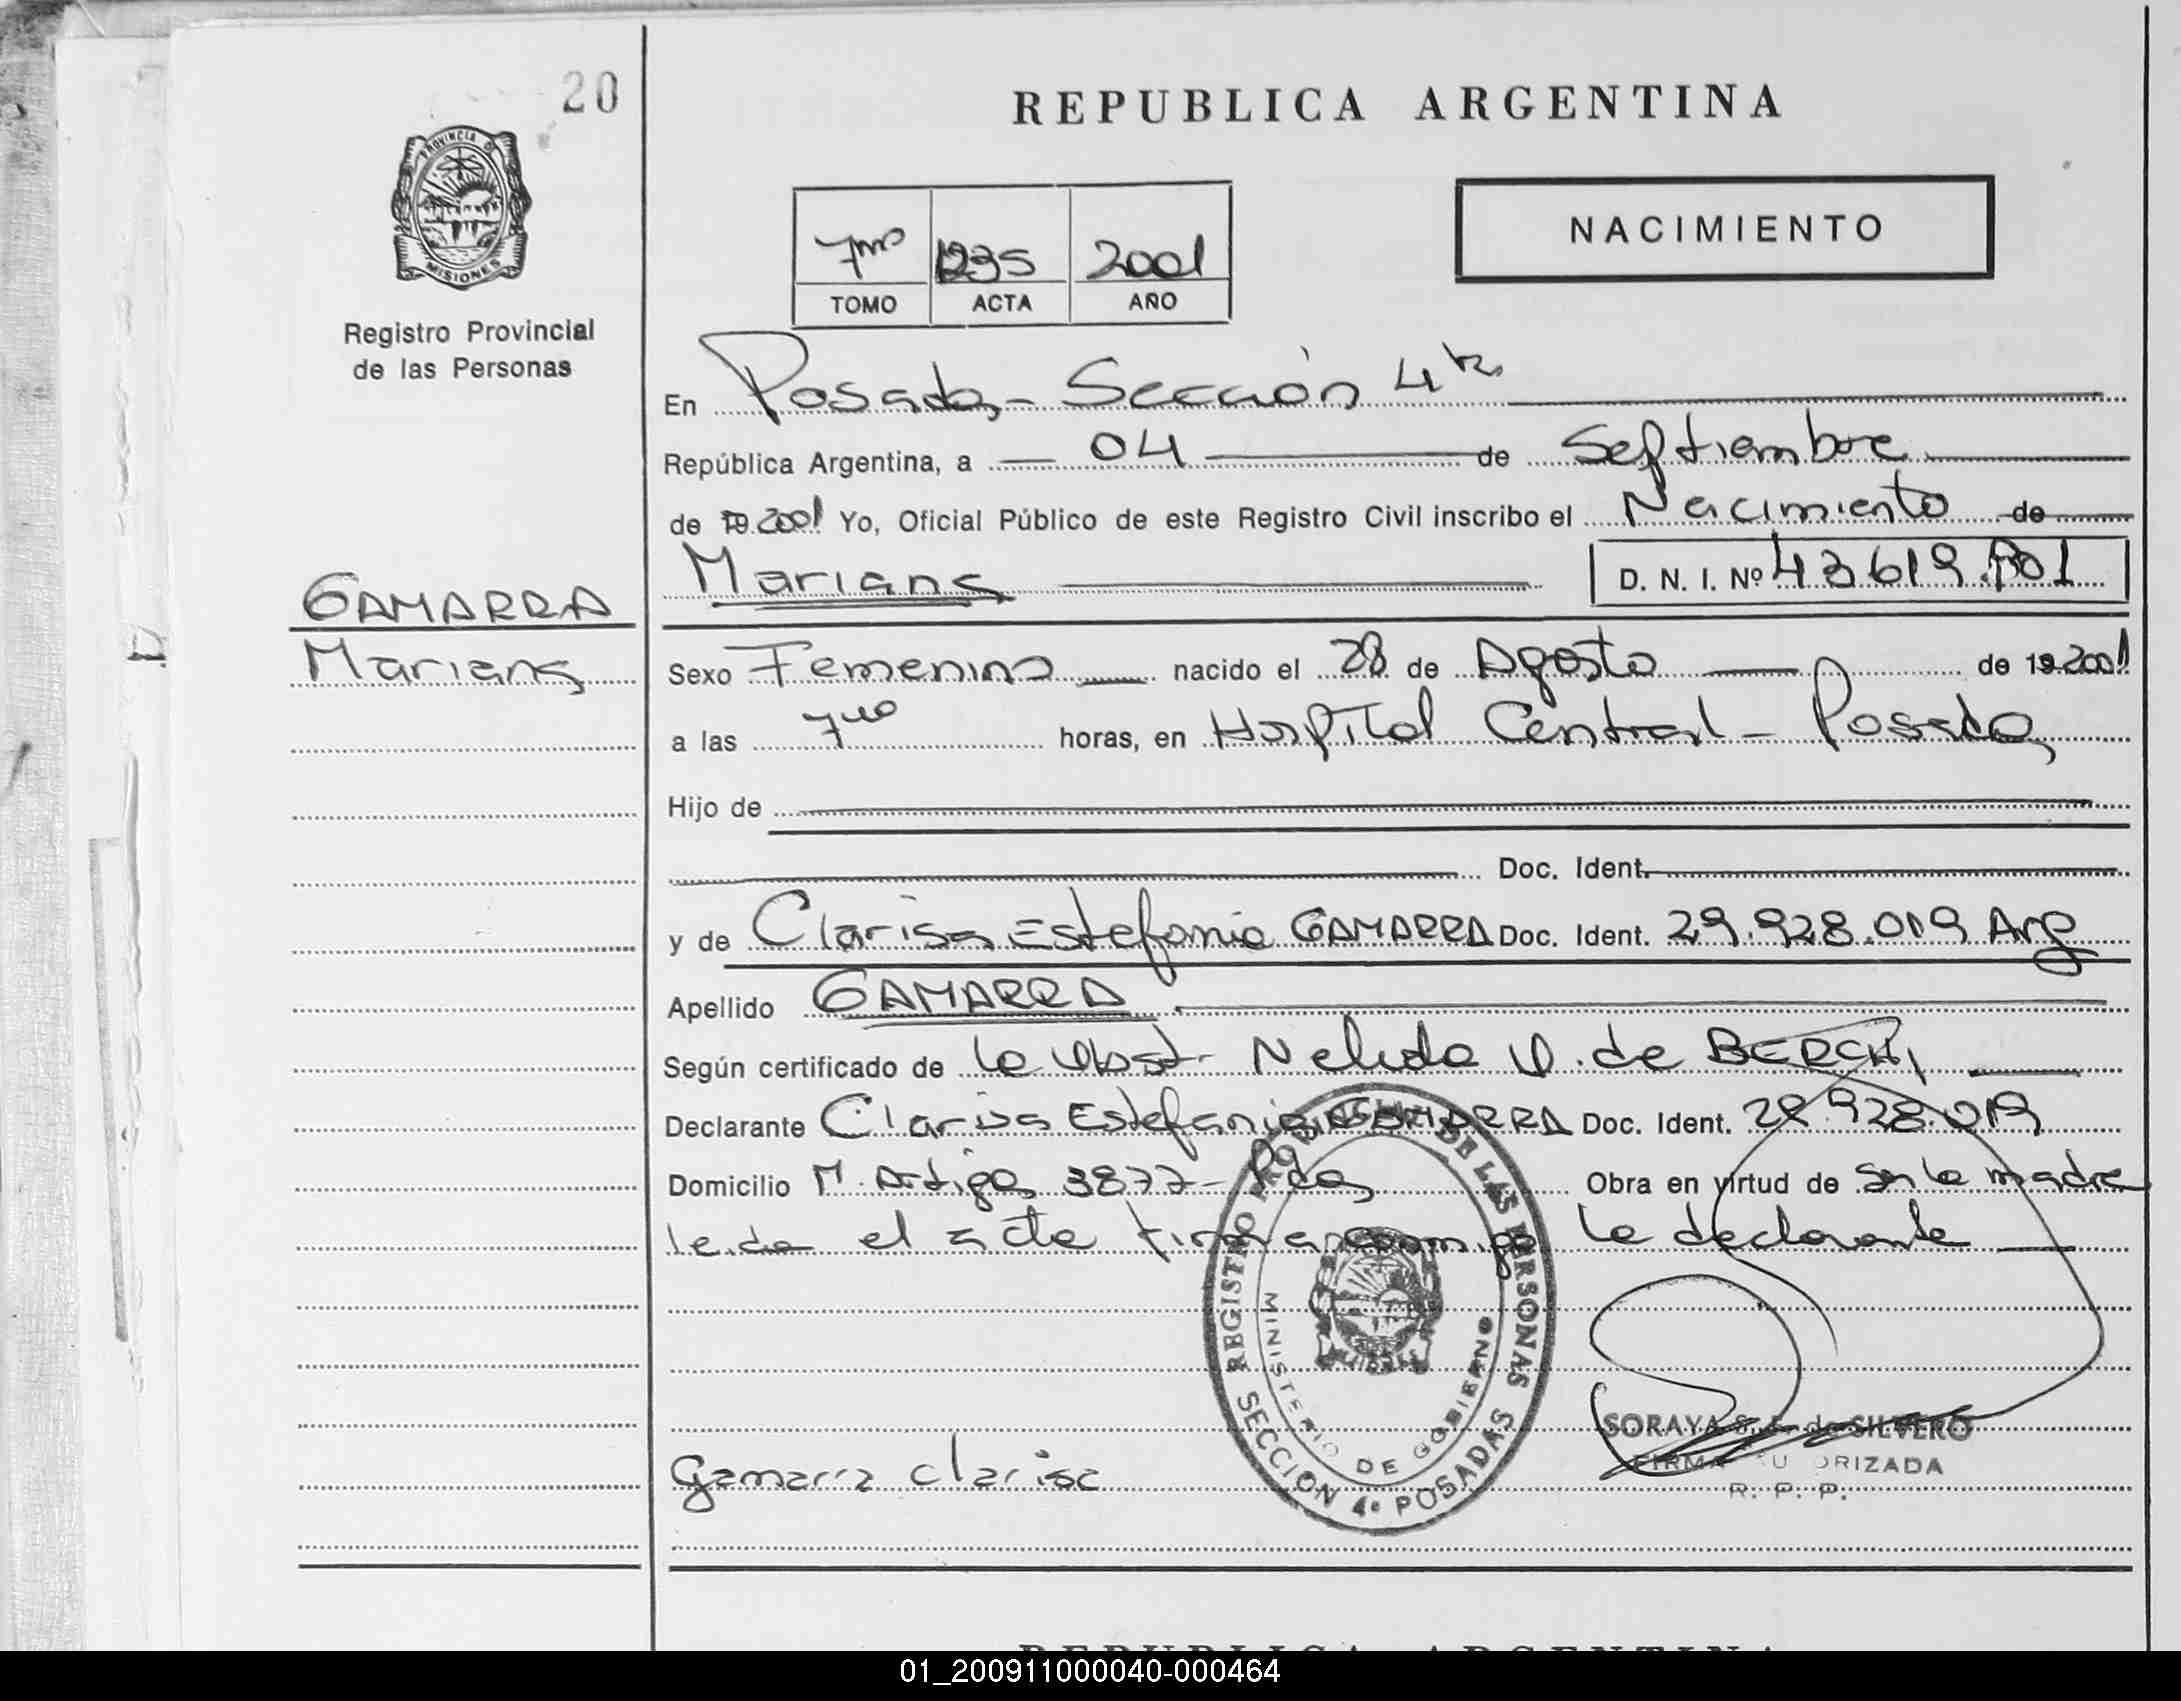 20
REPUBLICA ARGENTINA
PROVINCIA D
MISIONES
Registro Provincial
de las Personas
7mo 1235 2001
TOMO ACTA AÑO
NACIMIENTO
En Posadas - Sección 4ta
República Argentina, a 04 de Septiembre
de 19.2001 Yo, Oficial Público de este Registro Civil inscribo el Nacimiento de
Mariana D. N. I. Nº 43619.801
GAMARRA
Mariana
Sexo Femenino nacido el 28 de Agosto de 19.2001
a las 7 horas, en Hospital Central - Posadas
Hijo de
Doc. Ident.
y de Clarisa Estefania GAMARRA Doc. Ident. 29.928.019 Arg
Apellido GAMARRA
Según certificado de la Obst. Nelida V. de BERCHI
Declarante Clarisa Estefania GAMARRA Doc. Ident. 29.928.019
Domicilio M. Artigas 3877 - Pdas Obra en virtud de ser la madre
leida el acta firman conmigo la declarante
REGISTRO PROVINCIAL DE LAS PERSONAS
MINISTERIO DE GOBIERNO
SECCION 4º POSADAS
Gamarra clarisa
SORAYA S. F. de SILVERO
FIRMA AUTORIZADA
R. P. P.
REPUBLICA ARGENTINA
01_200911000040-000464